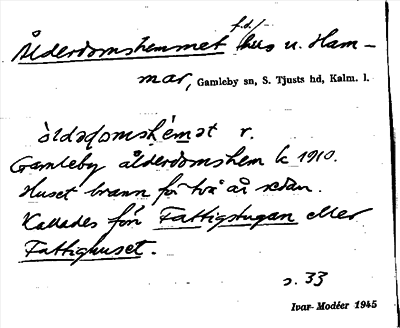 f.d./
Ålderdomshemmet hus u. Ham-
mar, Gamleby sn, S. Tjusts hd, Kalm. l.
òldədomshémət r.
Gamleby ålderdomshem k 1910.
Huset brann för två år sedan.
Kallades förr Fattigstugan eller
Fattighuset.
s. 33
Ivar Modéer 1945